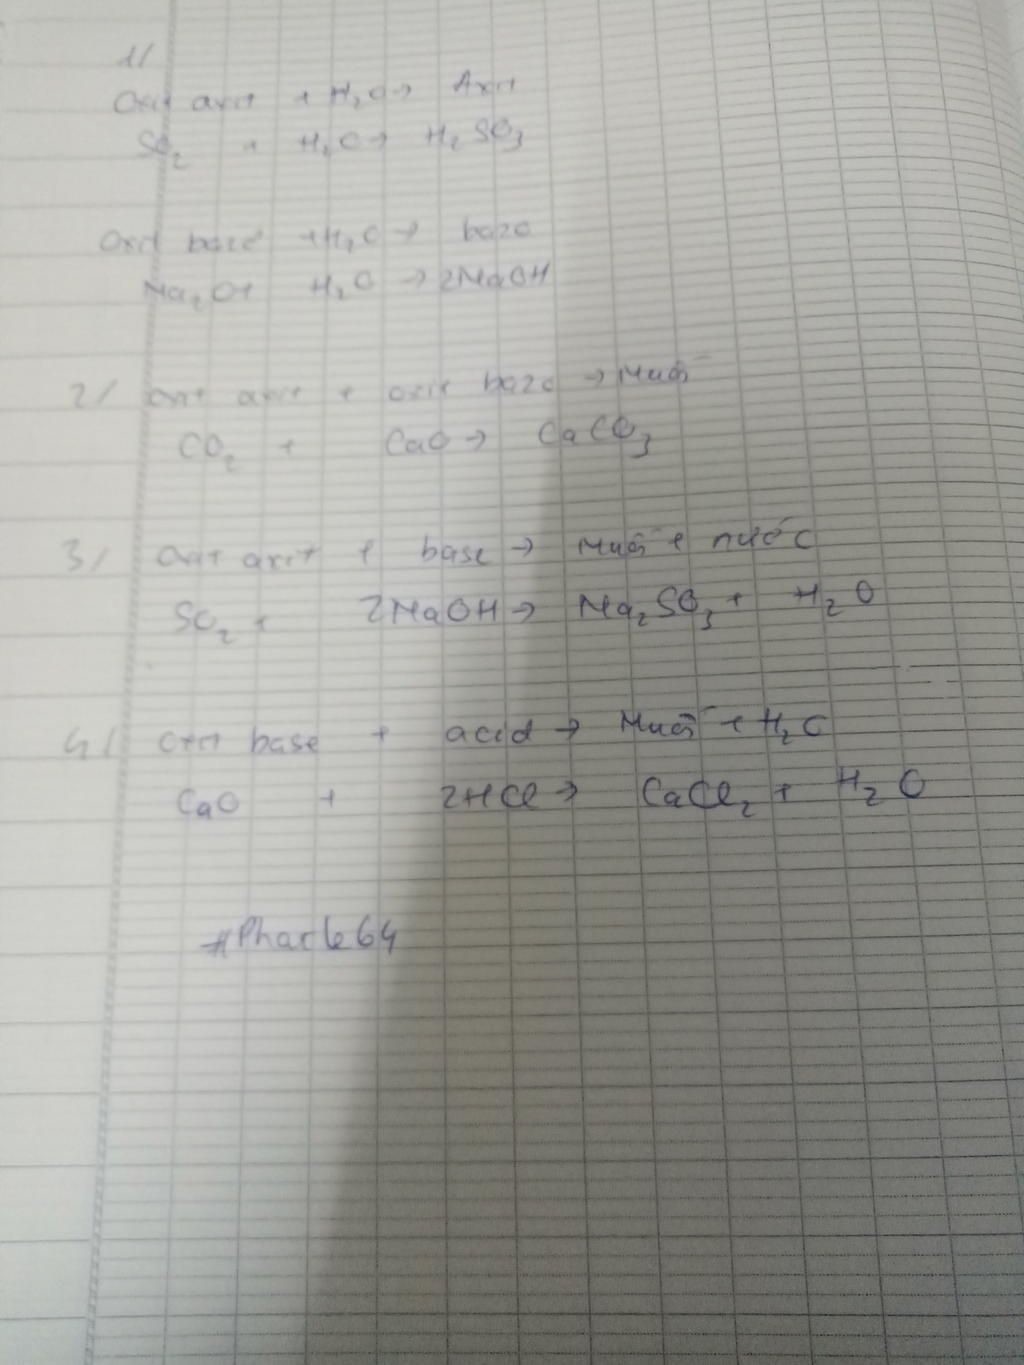 1/
Oxit axit + H₂O → Axit
SO₂ + H₂O → H₂SO₃
Oxit bazơ + H₂O → bazơ
Na₂O + H₂O → 2NaOH
2/ oxit axit + oxit bazo → Muối
CO₂ + CaO → CaCO₃
3/ oxit axit + base → Muối + nước
SO₂ + 2NaOH → Na₂SO₃ + H₂O
4/ oxit base + acid → Muối + H₂O
CaO + 2HCl → CaCl₂ + H₂O
#Phacle64